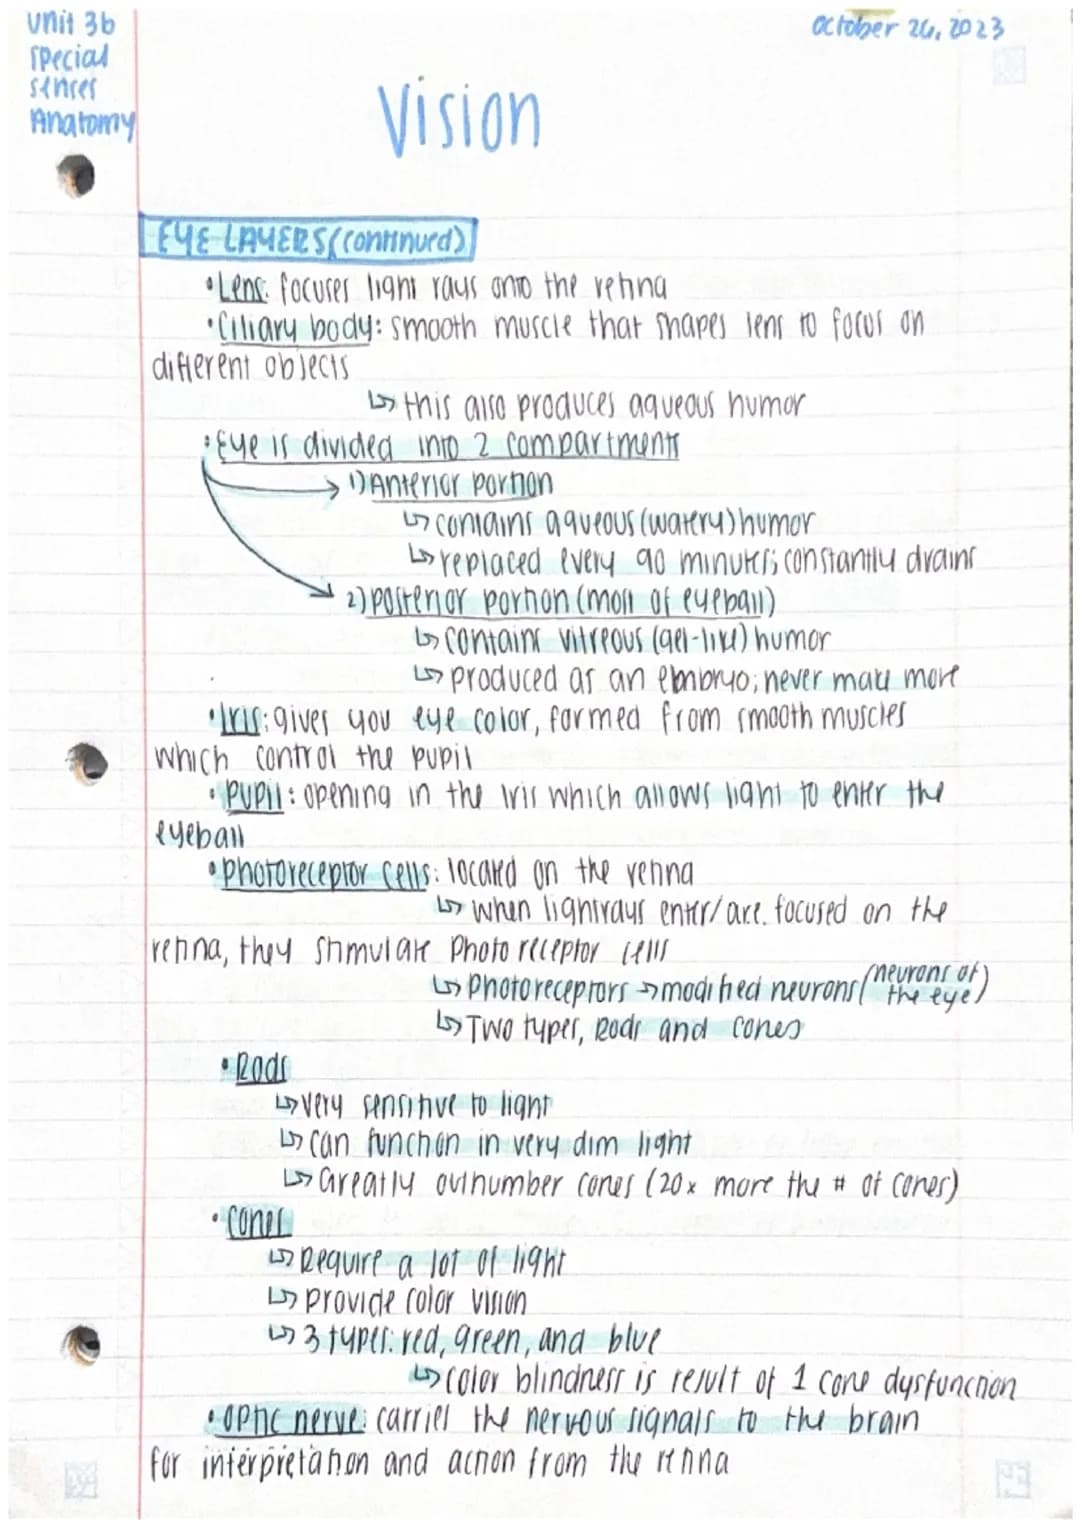 Unit 3b
Special
senses
Anatomy
October 26, 2023
Vision
EYE LAYERS (continued)
• Lens: focuses light rays onto the retina
• Ciliary body: smooth muscle that shapes lens to focus on
different objects
↳ this also produces aqueous humor
• Eye is divided into 2 compartments
→ 1) Anterior portion
↳ contains aqueous (watery) humor
↳ replaced every 90 minutes; constantly drains
→ 2) posterior portion (most of eyeball)
↳ contains vitreous (gel-like) humor
↳ produced as an embryo; never make more
• Iris: gives you eye color, formed from smooth muscles
which control the pupil
• Pupil: opening in the Iris which allows light to enter the
eyeball
• Photoreceptor cells: located on the retina
↳ when lightrays enter/are focused on the
retina, they stimulate Photo receptor cells
↳ Photoreceptors → modified neurons (neurons of the eye)
↳ Two types, Rods and cones
• Rods
↳ very sensitive to light
↳ can function in very dim light
↳ Greatly outnumber cones (20x more the # of cones)
• Cones
↳ Require a lot of light
↳ provide color vision
↳ 3 types: red, green, and blue
↳ color blindness is result of 1 cone dysfunction
• Optic nerve: carries the nervous signals to the brain
for interpretation and action from the retina